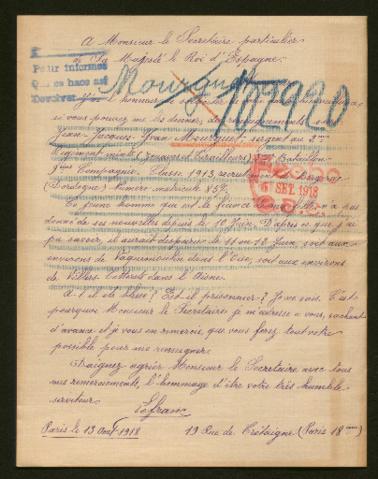 A Monsieur le Secrétaire particulier
de Sa Majesté le Roi d'Espagne.
Pour informes
Devolver
Mourguet
105920
J'ai l'honneur de
si vous pouvez me les donner, des renseignements
Jean Jacques Yvan Mourguet sergent au 2me
Régiment mixte zouaves et tirailleurs Bataillon
Compagnie. Classe 1913, recrutement
(Dordogne) Numéro matricule 852.
6 SET. 1918
Ce jeune homme qui est le fiancé n'a pas
donné de ses nouvelles depuis le 10 Juin. D'après ce que j'ai
pu savoir il aurait disparu le 11 ou 12 Juin, soit aux
environs de dans l'Oise, soit aux environs
de Villers Cotterets dans l'Aisne.
A t il été blessé? Est-il prisonnier? Je ne sais. C'est
pourquoi Monsieur le Secrétaire je m'adresse a vous, sachant
d'avance et je vous en remercie, que vous ferez tout votre
possible pour me renseigner.
Daignez agréer Monsieur le Secrétaire avec tous
mes remerciements, l'hommage d'être votre très humble
serviteur.
Lafranc
Paris le 13 Août 1918 19 Rue de Trétaigne (Paris 18ème)